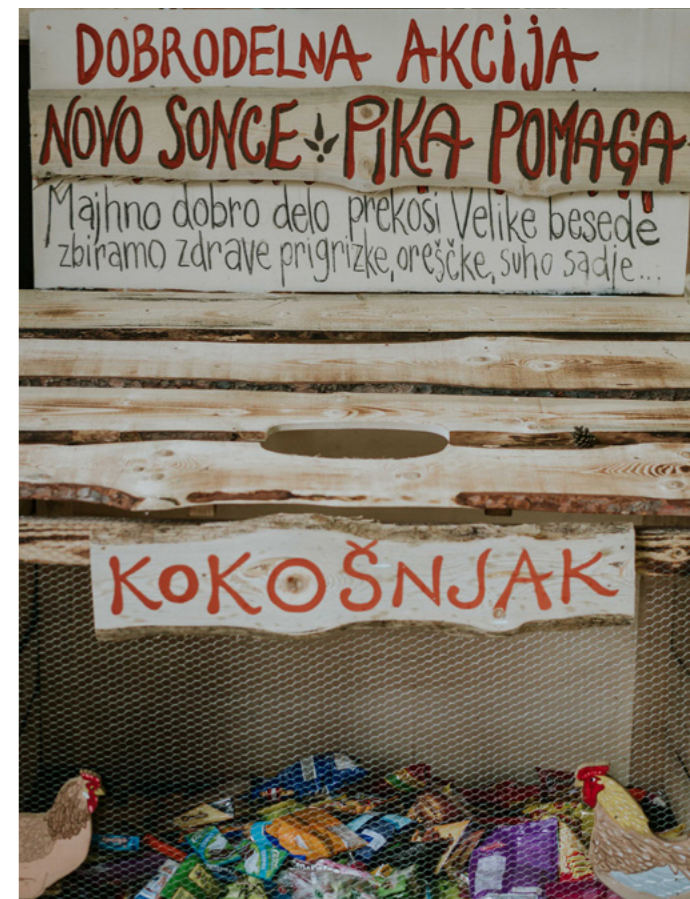 DOBRODELNA AKCIJA
NOVO SONCE PIKA POMAGA
Majhno dobro delo prekosi Velike besede
zbiramo zdrave prigrizke, oreščke, suho sadje...
KOKOŠNJAK